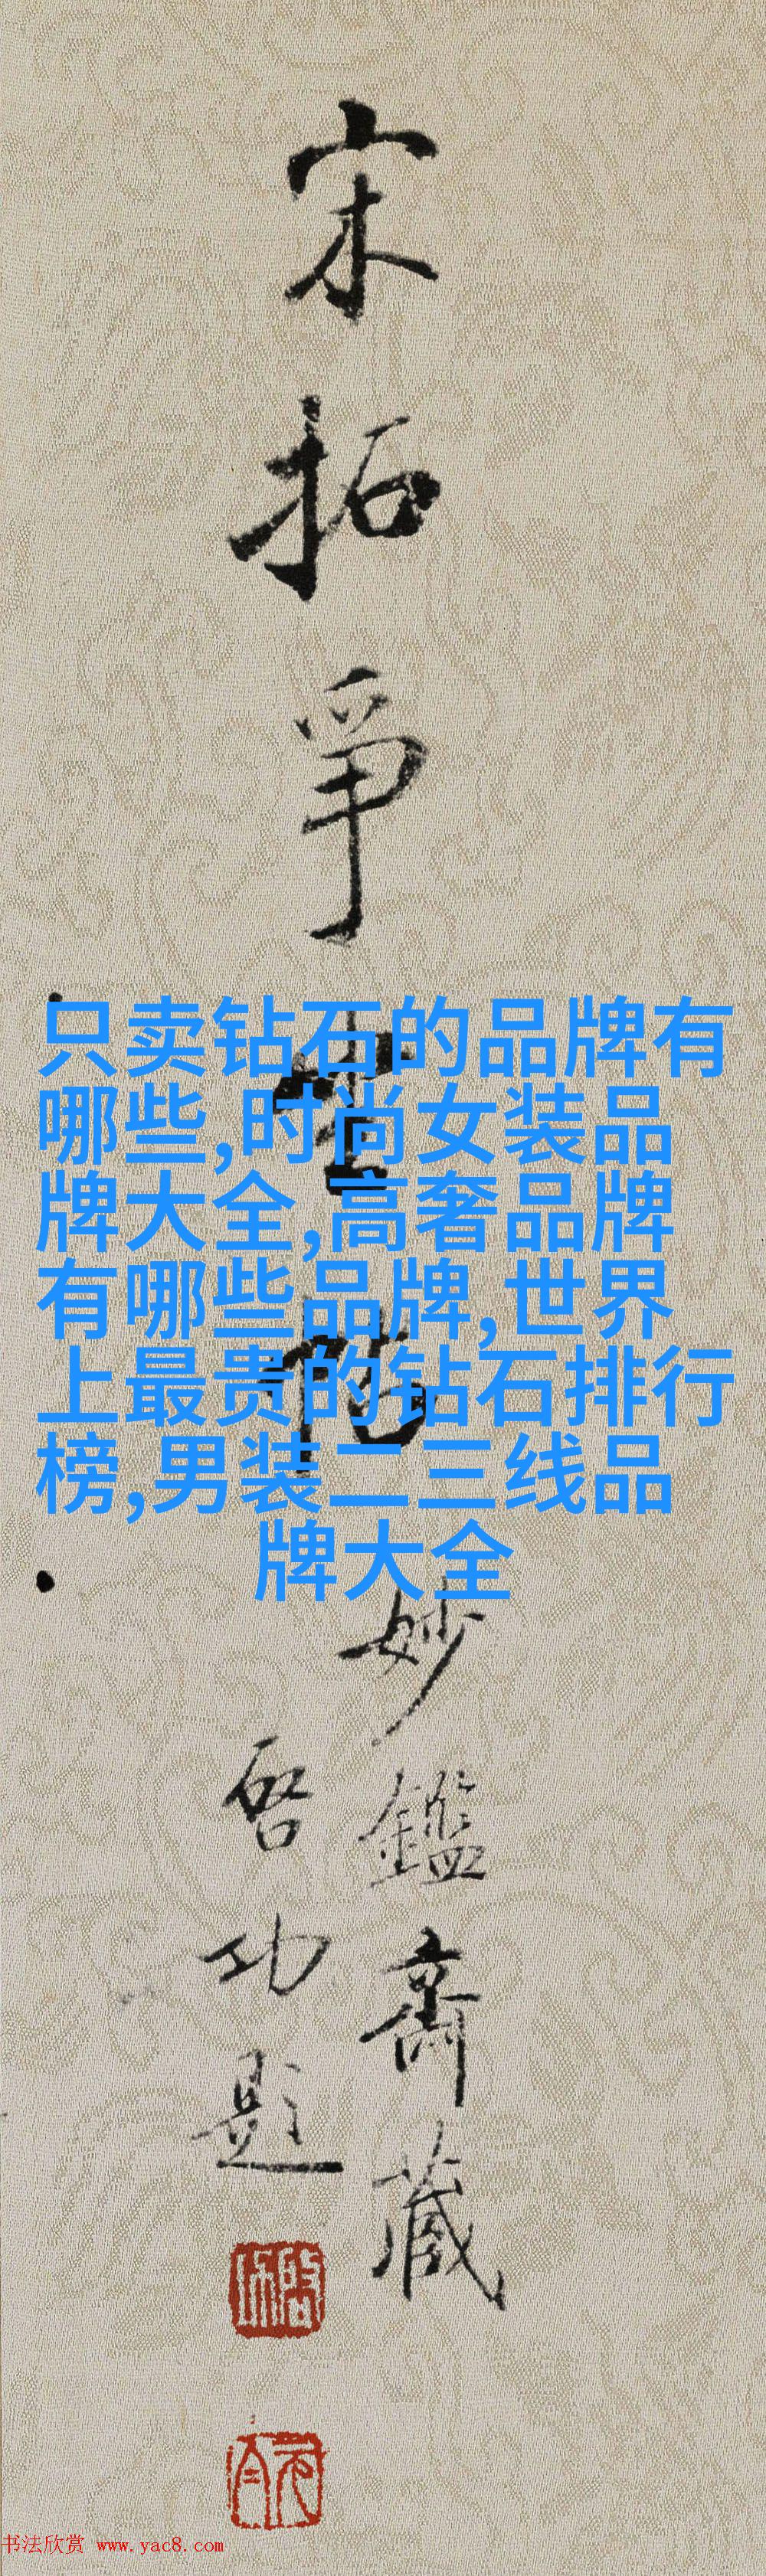 宋拓争坐位
只卖钻石的品牌有
哪些,时尚女装品
牌大全,高奢品牌
有哪些品牌,世界
上最贵的钻石排行
榜,男装二三线品
牌大全
妙鑑斋藏
启功题
书法欣赏 www.yac8.com